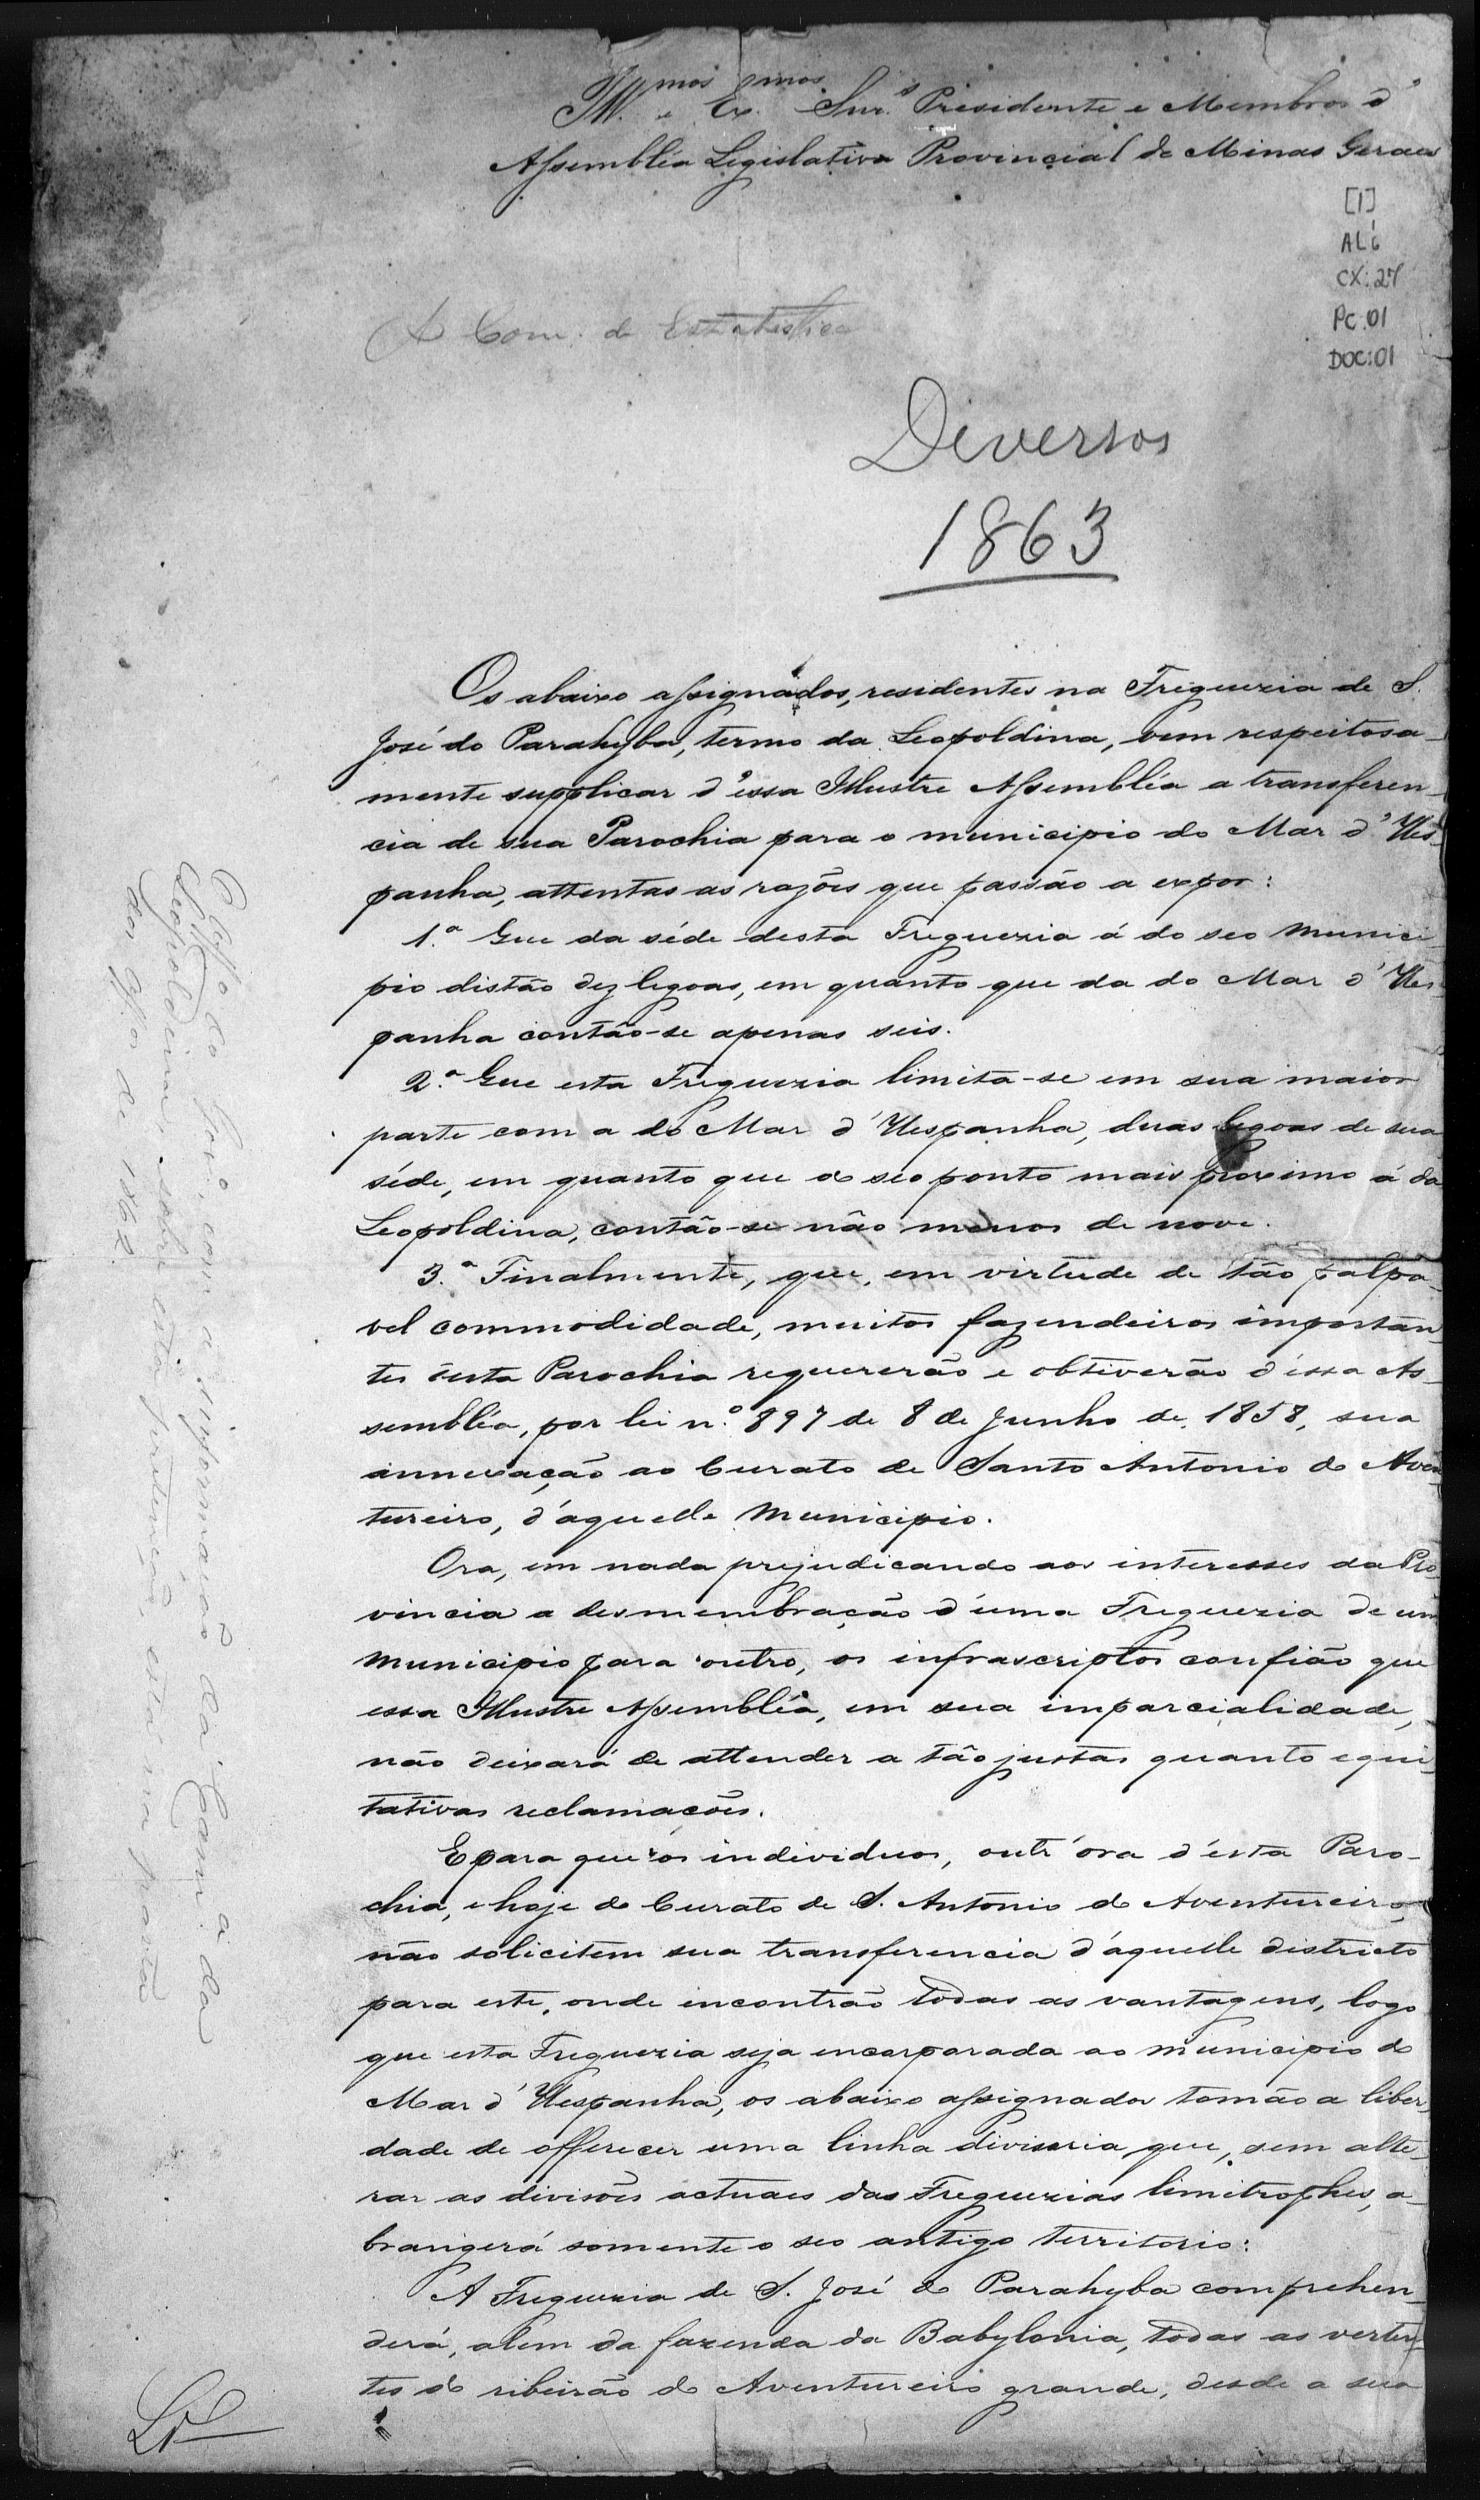 Ill.mos e Ex.mos Snr.s Presidente e Membros d'
Assembléa Legislativa Provincial de Minas Geraes
[1]
AL6
CX:27
PC:01
DOC:01
A Com. de Estatistica
Diversos
1863
Os abaixo assignados, residentes na Freguezia de S.
José do Parahyba, termo da Leopoldina, vem respeitosa-
mente supplicar d'essa Illustre Assembléa a transferen-
cia de sua Parochia para o municipio do Mar d'Hes-
panha, attentas as razões que passão a expor:
1.ª Que da séde desta Freguezia á do seo Munici-
pio distão dez legoas, em quanto que da do Mar d'Hes-
panha contão-se apenas seis.
2.ª Que esta Freguezia limita-se em sua maior
parte com a do Mar d'Hespanha, duas legoas de sua
séde, em quanto que do seo ponto mais proximo á da
Leopoldina, contão-se não menos de nove.
3.ª Finalmente, que, em virtude de tão palpa-
vel commodidade, muitos fazendeiros importan-
tes desta Parochia requererão e obtiverão d'essa As-
sembléa, por lei n.º 897 de 8 de Junho de 1858, sua
annexação ao Curato de Santo Antonio do Aven-
tureiro, d'aquelle Municipio.
Ora, em nada prejudicando aos interesses da Pro-
vincia a desmembração d'uma Freguezia de um
Municipio para outro, os infrascriptos confião que
essa Illustre Assembléa, em sua imparcialidade,
não deixará de attender a tão justas quanto equi-
tativas reclamações.
E para que os individuos, outr'ora d'esta Paro-
chia, e hoje do Curato de S. Antonio do Aventureiro,
não solicitem sua transferencia d'aquelle districto
para este, onde encontrão todas as vantagens, logo
que esta Freguezia seja encorporada ao Municipio do
Mar d'Hespanha, os abaixo assignados tomão a liber-
dade de offerecer uma linha divisoria que, sem alte-
rar as divisões actuaes das Freguezias limitrophes, a-
brangerá somente o seo antigo territorio:
A Freguezia de S. José do Parahyba comprehen-
derá, alem da fazenda da Babylonia, todas as verten-
tes do ribeirão do Aventureiro grande, desde a sua
O off.o do Gov.o, com a informação da Cam.a da
Leopoldina sobre esta pretenção, está na pasta
do off.o de 1862.